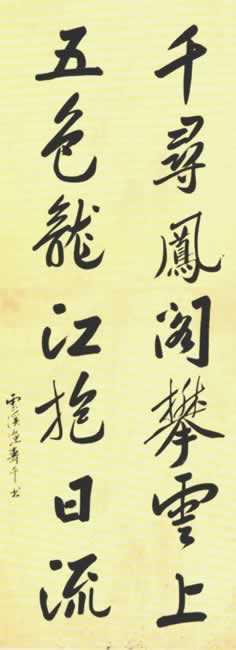 千尋鳳閣攀雲上
五色龍江抱日流
雲溪漁壽平書